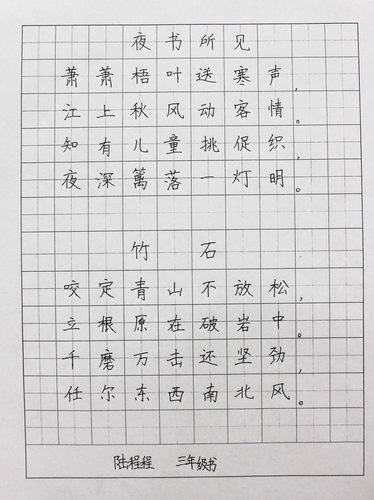 夜书所见
萧萧梧叶送寒声，
江上秋风动客情。
知有儿童挑促织，
夜深篱落一灯明。
竹石
咬定青山不放松，
立根原在破岩中。
千磨万击还坚劲，
任尔东西南北风。
陆程程 三年级书